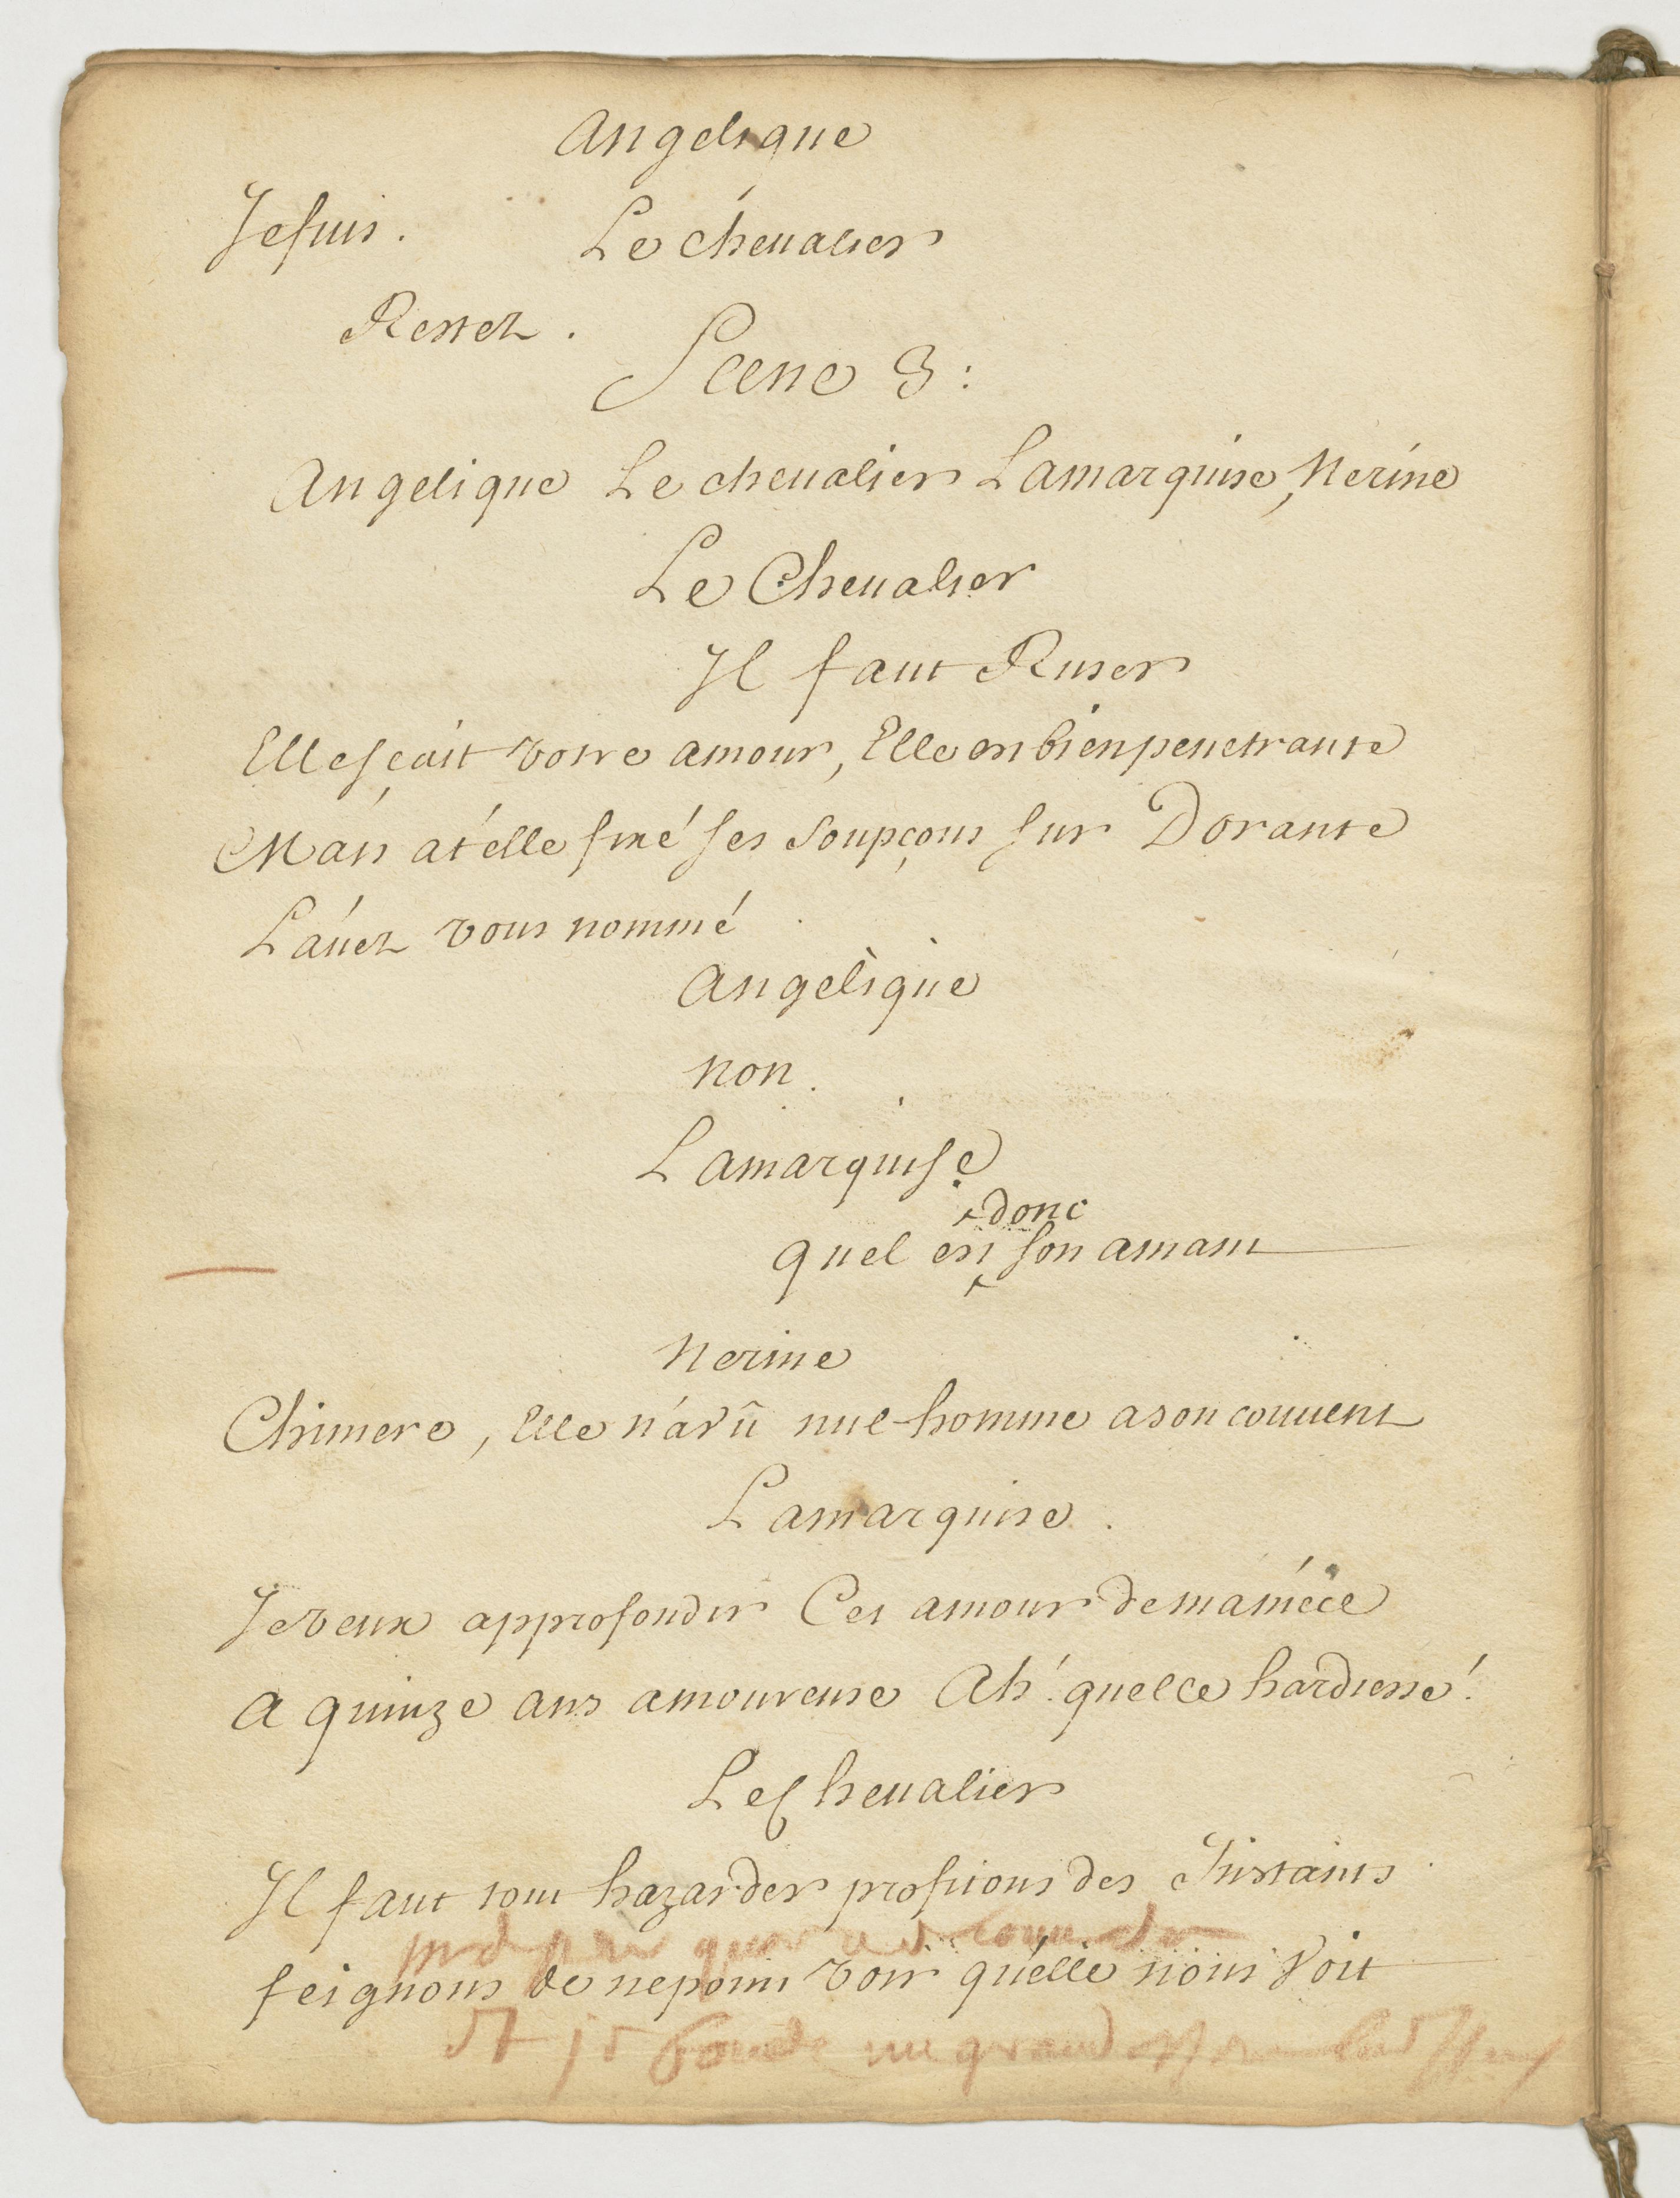 Angelique
Je fuis.
Le chevalier
Restez.
Scene 3:
Angelique Le chevalier Lamarquise, Nerine
Le Chevalier
Il faut Ruser
Elle sçait votre amour, Elle est bien penetrante
Mais at'elle fixé ses soupçons sur Dorante
L'avez vous nommé
Angelique
non.
Lamarquise
donc
quel est son amant
Nerine
Chimere, Elle n'a vû nul homme a son couvent
Lamarquise.
Je veux approfondir Cet amour de ma niéce
A quinze ans amoureuse Ah! quelle hardiesse!
Le Chevalier
Il faut tout hazarder profitons des Instants
feignons de ne point voir qu'elle nous voit
un grand